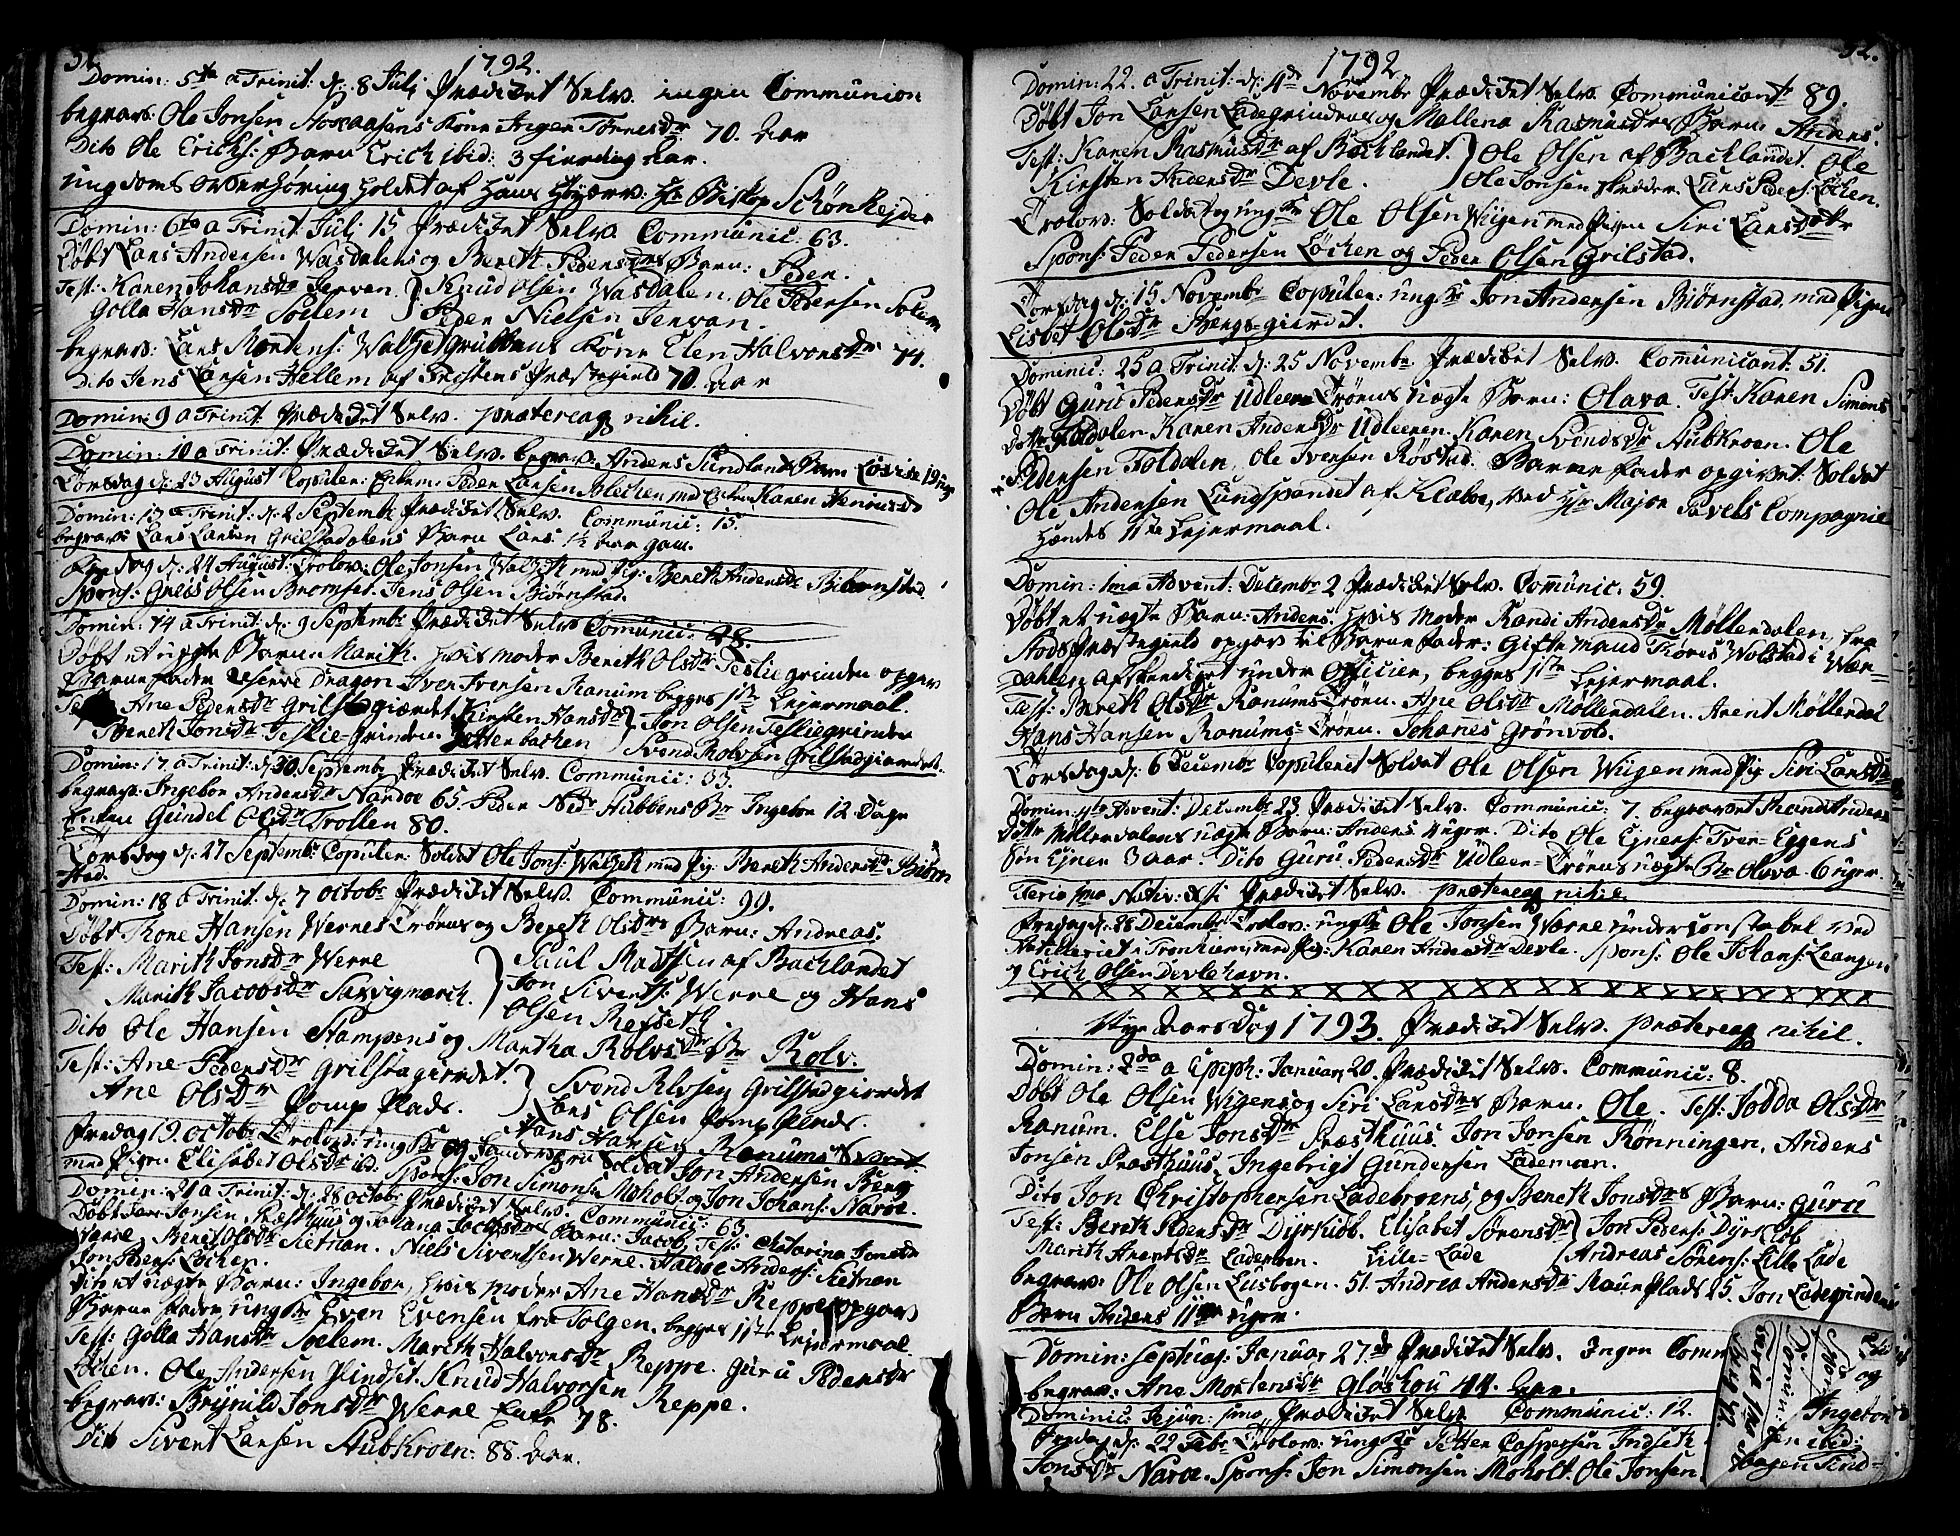 1792.
Domin: 5te a Trinit: d: 8 Julj Prædiket Selv. ingen Communion
begrav: Ole Jonsen Kone Ingen 70. Aar
Dito Ole Erichs: Barn Erich ibid: 3 fierding Aar.
ungdoms overhøring holdet af Hans Høyærv: Hr Biskop Schønheyder
Domin: 6te a Trinit: Julj 15 Prædiket Selv. Communic: 63.
Døbt Lars Andersen Wasdalens og Bereth Pedersdrs Barn: Peder.
Test: Karen Johansdr Jervan } Knud Olsen Wasdalen. Ole Pedersen Solem
Golla Hansdr Soelem } Peder Nielsen Jervan.
begrav: Lars Mortens: Kone Elen Halvorsdr 74.
Dito Jens Larsen Hellem af Præstegield 70. Aar
Domin: 9 a Trinit: Prædiket Selv. prætereaq nihil.
Domin: 10 a Trinit: Prædiket Selv. begrav: Anders Sundlands Barn Lovise 19 uger
Torsdag d: 23 August Copuler: Peder Larsen Blechen med Karen
Domin: 13 a Trinit: d: 2 Septembr Prædiket Selv. Communic: 15.
begrav: Lars Larsen Grilstadalens Barn Lars 1½ Aar gam.
Fredag d: 24 August: Trolov: Ole Jonsen med Pig: Bereth Andersdr
Spons: Olsen Bromset. Jens Olsen Biørnstad.
Domin: 14 a Trinit: d: 9 Septembr Prædiket Selv. Comunic: 48.
Døbt et uægte Barn Marith. hvis moder Bereth Olsdr Tesliegrinden opgav
Barnefader Reserve Dragon Iver Iversen Ranum begges 1ste Lejermaal.
Ane Pedersdr Grilstadgierdet Kirsten Hansdr } Jon Olsen Tesliegrinden
Bereth Jonsdr Teslie-Grinden. } Svend Rolvsen Grilstadgierdet.
Domin: 17 a Trinit: d: 30 Septembr Prædiket Selv. Communic: 33.
begrav: Ingebor Andersdr Nardoe 65. Peder Ingebor 12 Dage
Enken Gundel Olsdr Trollen 80.
Torsdag d: 27 Septembr: Copuler: Soldat Ole Jons: med Pig: Bereth Andersdr Biörn
stad.
Domin: 18 a Trinit: d: 7 octobr Prædiket Selv. Communic: 99.
Døbt Tore Hansen Wernes Trøens og Bereth Olsdrs Barn: Andreas.
Test: Marith Jonsdr Werne } Paul Madtsen af Backlandet
Marith Jacobsdr Saxvigmarch. } Jon Sivertsen Werne og Hans
Olsen Refseth
Dito Ole Hansen Stampens og Martha Rolvsdr Br Rolv.
Test: Ane Pedersdr Grilstagierdet. } Svend Rolvsen Grilstadgierdet
Ane Olsdr Plads. } Lars Olsen Plads.
Fredag 19. octobr Trolov: ungKr og Soldat Jon Andersen Berg
med Pigen Elisabet Olsdr ibid. Spons: Jon Simons: Moholt og Jon Johans: Naroe.
Domin: 21 a Trinit: d: 28 octobr Prædiket Selv. Communic: 63.
Døbt Jonsen Præsthuus og Johana Jacobsdrs Barn: Jacob. Test: Catarina Jonsdr
Werne. Bereth Olsdr Sietnan. Niels Sivertsen Werne. Haldoe Anders: Sietnan
Jon Peders: Löchen.
Dito et uægte Barn: Ingebor, hvis moder Ane Hansdr Reppe, opgav
Barne fader ungKr Even Evensen fra Tolgen. begges 1ste Lejermaal.
Test: Golla Hansdr Soelem. Marith Halvorsdr Reppe. Guru Pedersdr
Löchen. Ole Andersen Plindset. Knud Halvorsen Reppe.
begrav: Jonsdr Werne Enke 78.
Dito Sivert Larsen Hubkroen: 88. Aar.
1792
Domin: 22. a Trinit: d: 4de Novembr Prædiket Selv. Communicantr 89.
Døbt Jon Larsen Ladegrindens og Mallena Rasmusdrs Barn: Anders.
Test: Karen Rasmusdr af Backlandet. } Ole Olsen af Backlandet. Ole
Kirsten Andersdr Devle. } Ole Jonsen Lars Peders: Löchen.
Trolov: Soldat og ungKr Ole Olsen Wiigen med Pigen Siri Larsdottr
Spons: Peder Pedersen Löchen og Peder Olsen Grilstad.
Torsdag d: 15 Novembr Copuler: ungKr Jon Andersen Biørnstad med Pigen
Lisbet Olsdr Bergs-gierdet.
Dominic: 25 a Trinit: d: 25 Novembr Prædiket Selv. Comunicant. 51.
Døbt Guru Pedersdr Udleer Trøens uægte Barn: Olava. Test: Karen Simens
dottr Foldalen Karen Andersdr Udleeren. Karen Svendsdr Hubkroen. Ole
Pedersen Foldalen, Ole Iversen Röstad. Barne fader opgivet Soldat
Ole Andersen Lundspendet af Klæboe, ved Hr Major Pavels Compagnie
Hændes 1ste Lejermaal.
Domin: 1ma Advent: Decembr 2 Prædiket Selv. Comunic. 59.
Døbt et uægte Barn: Anders. hvis moder Randi Andersdr Möllerdalen, fra
Stods Præstegield opgav til Barne fader: Gifte mand Tores Wolstad i Wær-
dahlen afskendiget under officier, begges 1ste Lejermaal.
Test: Bereth Olsdr Ranums Trøen. Ane Olsdr Möllerdalen. Arent Möllerdal
Hans Hansen Ranums-Trøen. Johanes Grönvold.
Torsdag d: 6 Decembr Copuleret Soldat Ole Olsen Wiigen med Pig: Siri Larsdr
Domin: 4te Advent: Decembr 23. Prædiket Selv. Communic: 7. begravet Randi Anders
dottr Möllerdalens uægte Barn: Anders 4 uger. Dito Ole Ejners: Tver-Eggens
Søn Ejner 3 aar. Dito Guru Pedersdr Udleer-Trøens uægte Br Olava 6 uger.
Feria 1ma Nativ: Xsti Prædiket Selv. prætereaq nihil.
Fredag d: 28 Decembr Trolov: ungKr Ole Jonsen Værne underconstabel ved
Artilleriet i Tronhiem, med Pig: Karen Andersdr Devle. Spons: Ole Johans: Leangen
og Erich Olsen Devlehavn.
Nye Aars Dag 1793. Prædiket Selv. prætereaq nihil.
Domin: 2da a Epiph: Januar 20. Prædiket Selv. Communic: 8.
Døbt Ole Olsen Wigens og Siri Larsdrs Barn: Ole. Test: Jodda Olsdr
Ranum. Else Jonsdr Præsthuus. Jon Jonsen Rønningen. Anders
Jonsen Præsthuus. Ingebrigt Gundersen Lademoen.
Dito Jon Christophersen Ladebroens, og Bereth Jonsdrs Barn: Guru
Test: Bereth Pedersdr Dyrskibb. Elisabet Sørensdr } Jon Peders: Dyrskib
Marith Arentsdr Lademoen. Lille-Lade } Andreas Sørens: Lille Lade
begrav: Ole Olsen Lusbogen. 51. Andrea Andersdr Plads 25. Jon Ladegrindens
Barn Anders 11 uger.
Domin: Septuag: Januar 27de Prædiket Selv. Ingen Comm
begrav: Ane Mortensdr Gløshou 44. Aar.
Dominic: Jejun: 1ma, Prædiket Selv. Communic: 12.
Fredag d: 22 Febr Trolov: ungKr Petter Caspersen Indset
Jonsdr Naroe. Spons: Jon Simonsen Moholt. Ole Jonsen
og
Ingebor
ibid: